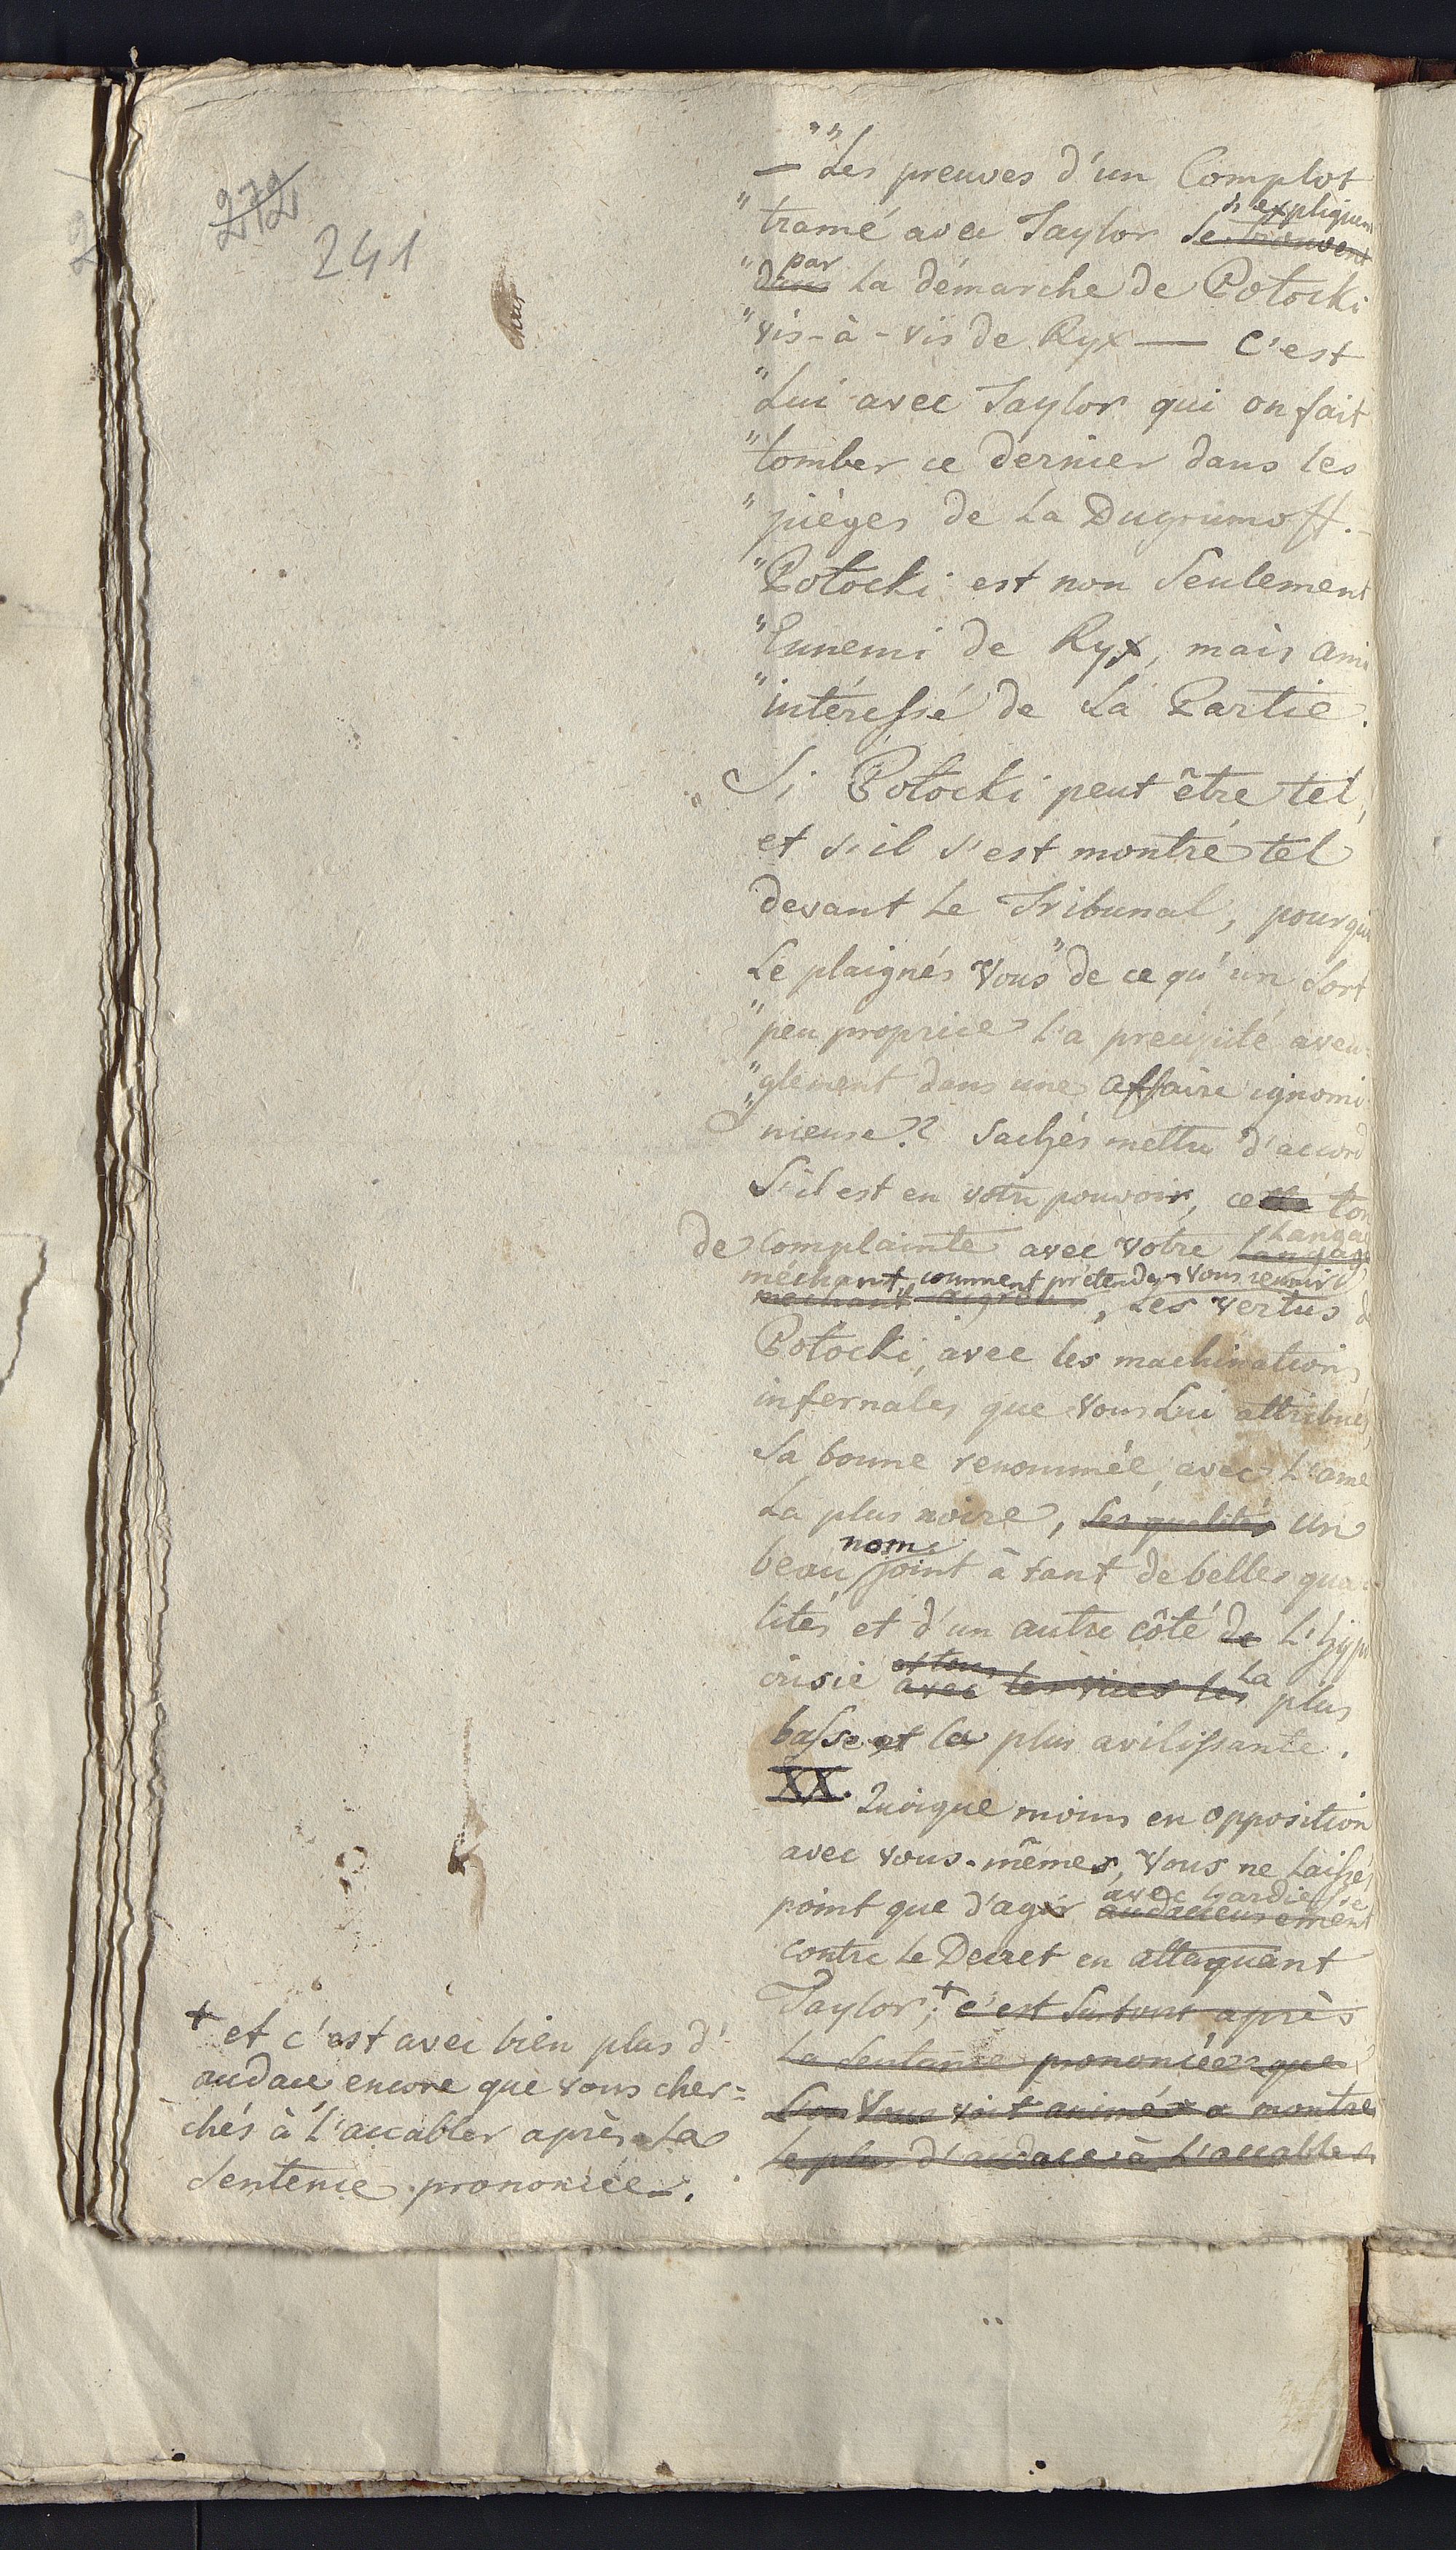 272
241
— "Les preuves d'un Complot
" tramé avec Taylor se trouvent s'expliquent
" dans par la démarche de Potocki
" vis-à-vis de Ryx — C'est
" Lui avec Taylor qui on fait
" tomber ce dernier dans les
" pièges de La Dugrumoff.
" Potocki est non Seulement
" Ennemi de Ryx, mais ami
" intéressé de La Partie.
Si Potocki peut être tel,
et s'il s'est montré tel
devant Le Tribunal, pourquoi
Le plaignés Vous "de ce qu'un Sort
" peu proprice l'a precipité aveu-
" glement dans une affaire ignomi-
" nieuse? Sachés mettre d'accord
S'il est en votre pouvoir, ce ton
de complainte avec votre Langage
méchant, comment prétendez-vous réunir
méchant, Les vertus de
Potocki, avec les machinations
infernales que Vous Lui attribués,
Sa bonne renommée, avec L'ame
La plus noire, Ses qualités un
beau nom joint à tant de belles qua-
lités et d'un autre côté de L'hypo
crisie avec et tous les vices les La plus
basse et la plus avilissante.
XX. Quoique moins en opposition
avec vous-mêmes, Vous ne Laissés
point que d'agir audacieusement avec hardiesse
contre Le Decret en attaquant
Taylor, + c'est Surtout après
La Sentance prononcée que
L'on Vous voit animés a montrer
Le plus d'audace à L'accabler
+ et c'est avec bien plus d'
audace encore que vous cher=
chés à L'accabler après La
Sentence prononcée.